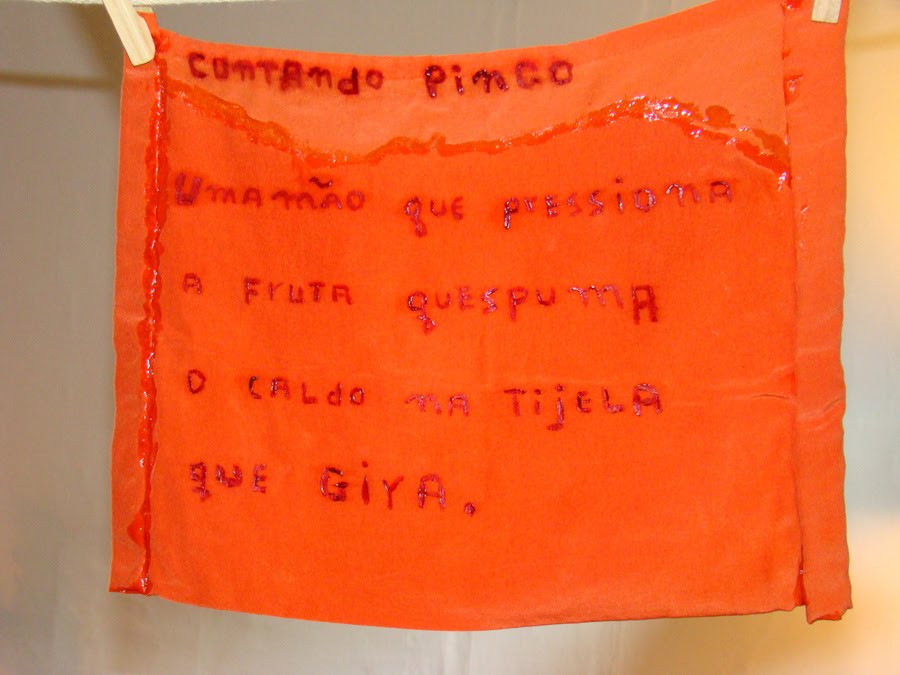 CONTANdO PiNGO
UMA MÃO QUE PrESSiONA
A FrUTA QUESPUMA
O CALdO NA TijELA
QUE GirA.